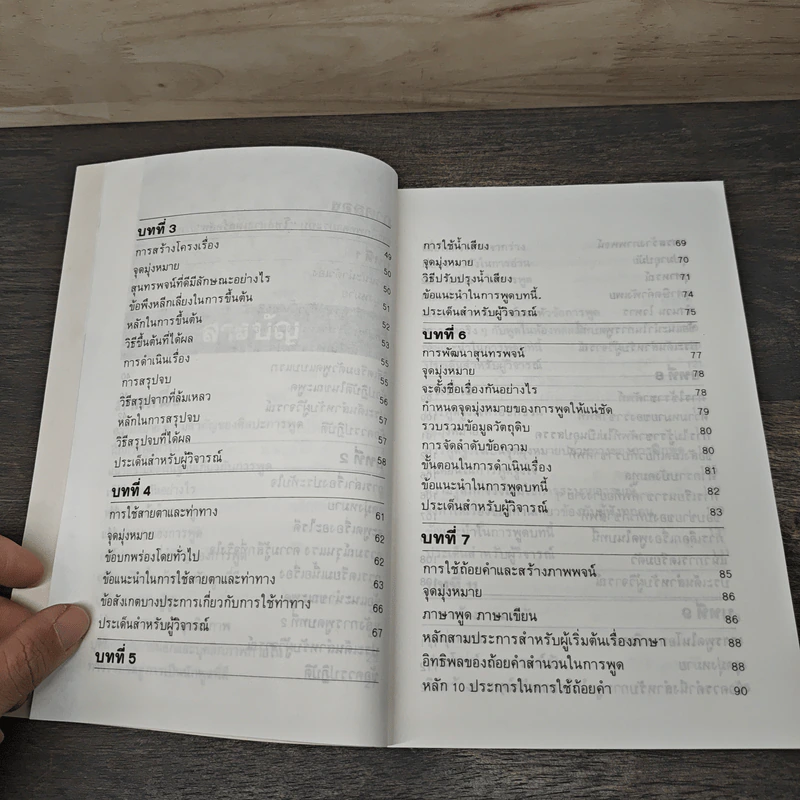 บทที่ 3
การสร้างโครงเรื่อง 49
จุดมุ่งหมาย 50
สุนทรพจน์ที่ดีมีลักษณะอย่างไร 50
ข้อพึงหลีกเลี่ยงในการขึ้นต้น 51
หลักในการขึ้นต้น 52
วิธีขึ้นต้นที่ได้ผล 53
การดำเนินเรื่อง 55
การสรุปจบ 55
วิธีสรุปจากที่ล้มเหลว 56
หลักในการสรุปจบ 57
วิธีสรุปจบที่ได้ผล 57
ประเด็นสำหรับผู้วิจารณ์ 58
บทที่ 4
การใช้สายตาและท่าทาง 61
จุดมุ่งหมาย 62
ข้อบกพร่องโดยทั่วไป 62
ข้อแนะนำในการใช้สายตาและท่าทาง 63
ข้อสังเกตบางประการเกี่ยวกับการใช้ท่าทาง 66
ประเด็นสำหรับผู้วิจารณ์ 67
บทที่ 5
การใช้น้ำเสียง 69
จุดมุ่งหมาย 70
วิธีปรับปรุงน้ำเสียง 71
ข้อแนะนำในการพูดบทนี้. 74
ประเด็นสำหรับผู้วิจารณ์ 75
บทที่ 6
การพัฒนาสุนทรพจน์ 77
จุดมุ่งหมาย 78
จะตั้งชื่อเรื่องกันอย่างไร 78
กำหนดจุดมุ่งหมายของการพูดให้แน่ชัด 79
รวบรวมข้อมูลวัตถุดิบ 80
การจัดลำดับข้อความ 80
ขั้นตอนในการดำเนินเรื่อง 81
ข้อแนะนำในการพูดบทนี้ 82
ประเด็นสำหรับผู้วิจารณ์ 83
บทที่ 7
การใช้ถ้อยคำและสร้างภาพพจน์ 85
จุดมุ่งหมาย 86
ภาษาพูด ภาษาเขียน 86
หลักสามประการสำหรับผู้เริ่มต้นเรื่องภาษา 88
อิทธิพลของถ้อยคำสำนวนในการพูด 88
หลัก 10 ประการในการใช้ถ้อยคำ 90